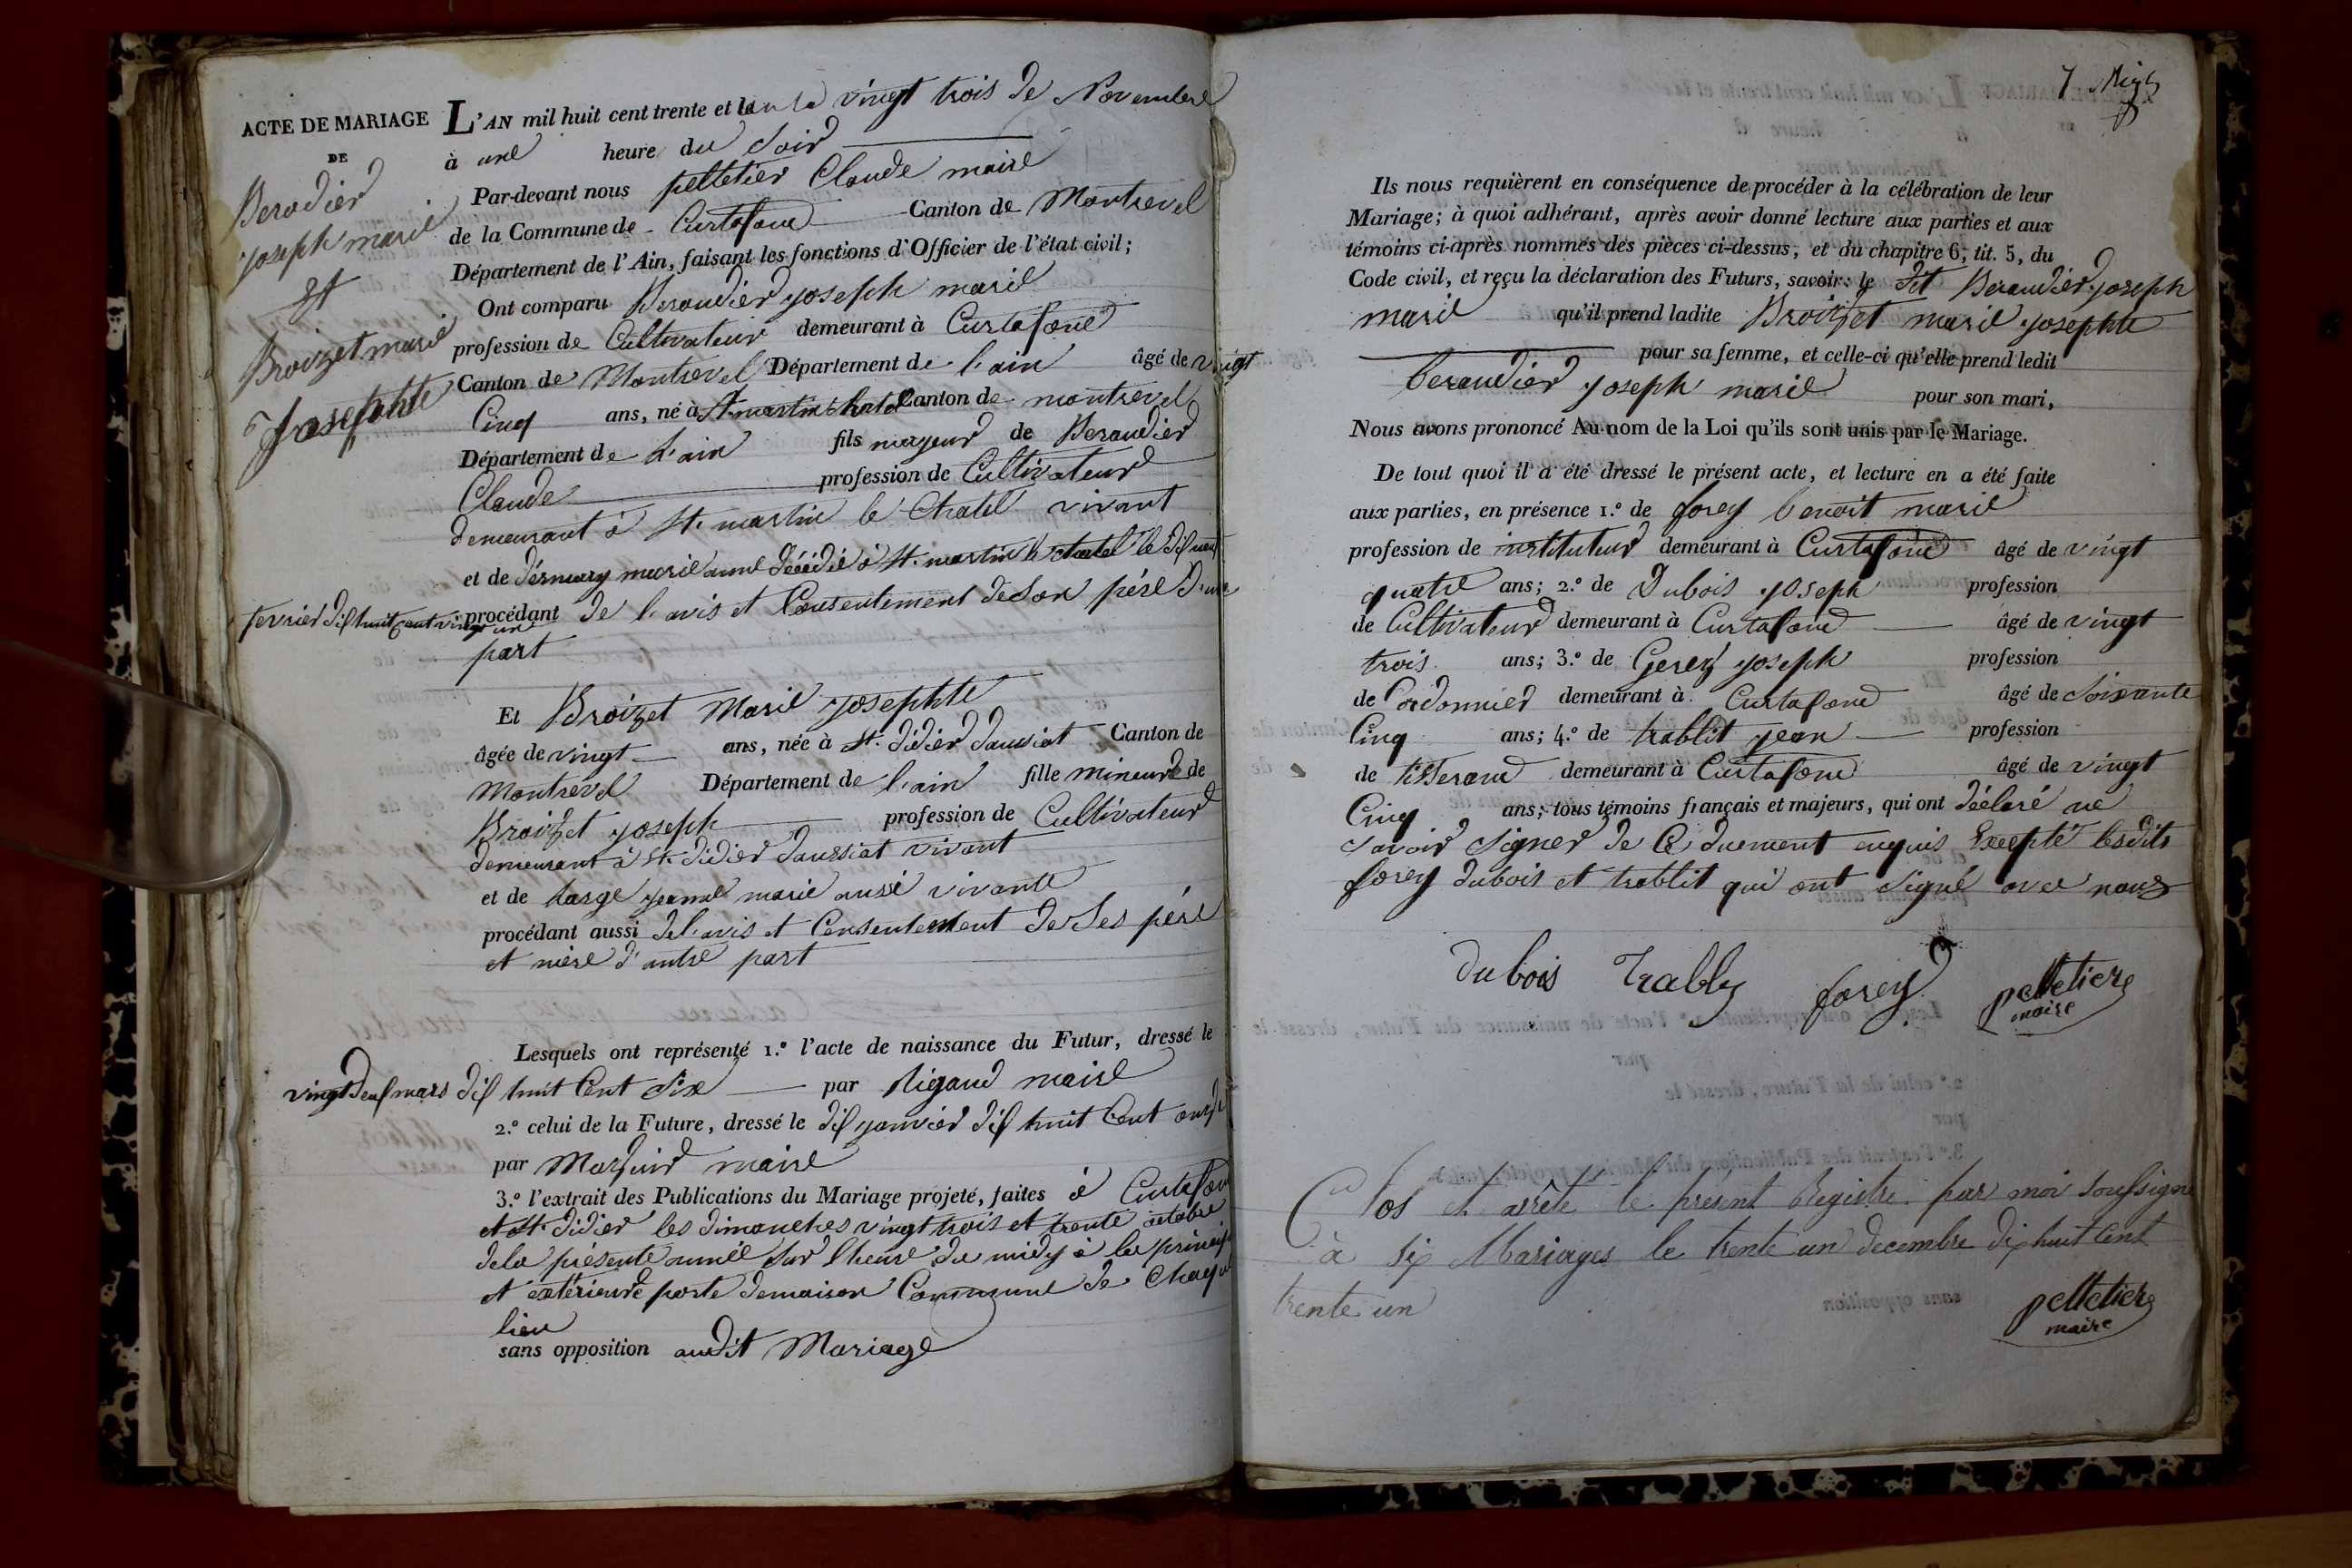 ACTE DE MARIAGE
DE
Beraudier
joseph marie
Et
Broizet marie
Josephte
L'AN mil huit cent trente et un le vingt trois de Novembre
à une heure du Soir
Par-devant nous pelletier Claude maire
de la Commune de Curtafond Canton de Montrevel
Département de l'Ain, faisant les fonctions d'Officier de l'état civil;
Ont comparu Beraudier joseph marie
profession de Cultivateur demeurant à Curtafond
Canton de Montrevel Département de l'ain âgé de vingt
Cinq ans, né à St. martin le chatel Canton de montrevel
Département de L'ain fils majeur de Beraudier
Claude profession de Cultivateur
demeurant à St. martin le Chatel vivant
et de marie anne décédée à St. martin le chatel le dix neuf
fevrier dix huit Cent vingt un
procédant de l'avis et Consentement de Son père d'une
part
Et Broizet Marie josephte
âgée de vingt ans, née à St. didier daussiat Canton de
Montrevel Département de l'ain fille mineure de
Broizet joseph profession de Cultivateur
demeurant à St. didier daussiat vivant
et de targe jeanne marie aussi vivante
procédant aussi de l'avis et Consentement de Ses père
et mère d'autre part
Lesquels ont représenté 1.º l'acte de naissance du Futur, dressé le
vingt deux mars dix huit Cent Six par Rigaud maire
2.º celui de la Future, dressé le dix janvier dix huit Cent onze
par maire
3.º l'extrait des Publications du Mariage projeté, faites à Curtafond
et St. didier les dimanches vingt trois et trente octobre
de la présente année Sur l'heure du midy à la
et extérieure porte de maison Commune de Chaque
lieu
sans opposition audit Mariage
7
Ils nous requièrent en conséquence de procéder à la célébration de leur
Mariage; à quoi adhérant, après avoir donné lecture aux parties et aux
témoins ci-après nommés des pièces ci-dessus, et du chapitre 6, tit. 5, du
Code civil, et reçu la déclaration des Futurs, savoir: le dit Beraudier joseph
marie qu'il prend ladite Broizet marie josephte
pour sa femme, et celle-ci qu'elle prend ledit
beraudier joseph marie pour son mari,
Nous avons prononcé Au nom de la Loi qu'ils sont unis par le Mariage.
De tout quoi il a été dressé le présent acte, et lecture en a été faite
aux parties, en présence 1.º de forey benoit marie
profession de instituteur demeurant à Curtafond âgé de vingt
quatre ans; 2.º de Dubois joseph profession
de Cultivateur demeurant à Curtafond âgé de vingt
trois ans; 3.º de Gerey joseph profession
de Cordonnier demeurant à Curtafond âgé de Soixante
Cinq ans; 4.º de trablit jean profession
de tisserand demeurant à Curtafond âgé de vingt
Cinq ans; tous témoins français et majeurs, qui ont déclaré ne
Savoir Signer de Ce duement enquis Excepté lesdits
forey dubois et trablit qui ont Signé avec nous
dubois Trably forey pelletier
maire
Clos et arrêté le présent Registre par moi soussigné
à six Mariages le trente un decembre dix huit Cent
trente un
pelletier
maire